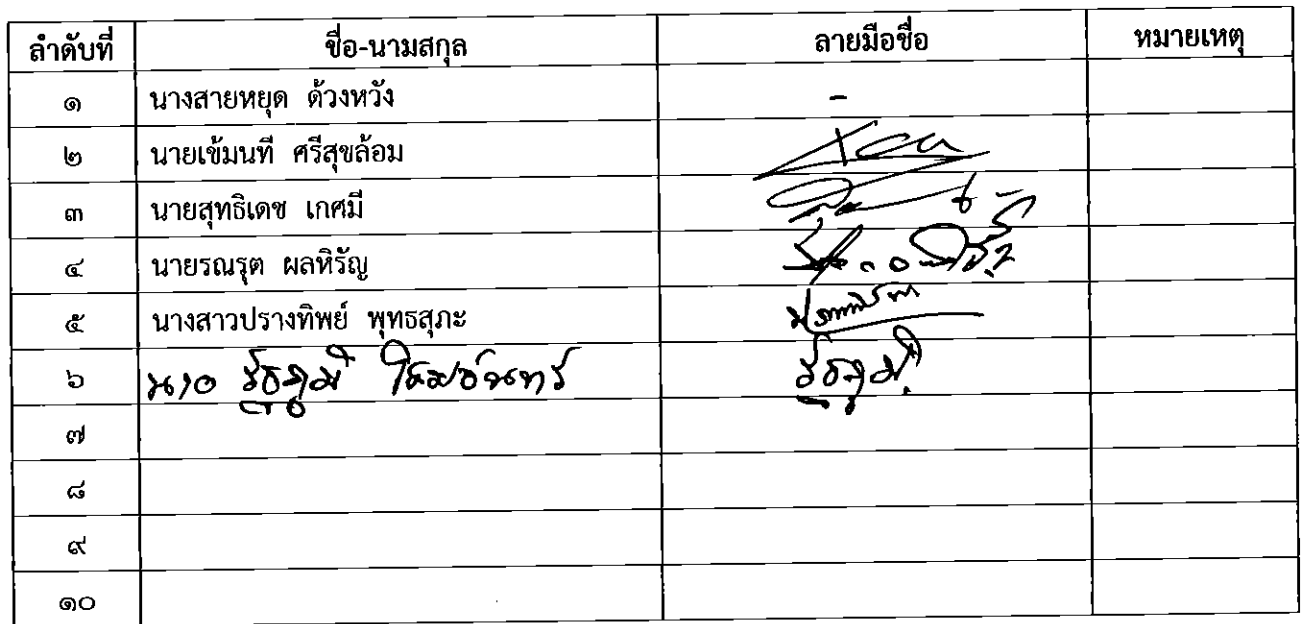 ลำดับที่ ชื่อ-นามสกุล ลายมือชื่อ หมายเหตุ
๑ นางสายหยุด ด้วงหวัง -
๒ นายเข้มนที ศรีสุขล้อม
๓ นายสุทธิเดช เกศมี
๔ นายรณรุต ผลหิรัญ
๕ นางสาวปรางทิพย์ พุทธสุภะ
๖ นาย รัฐภูมี
๗
๘
๙
๑๐